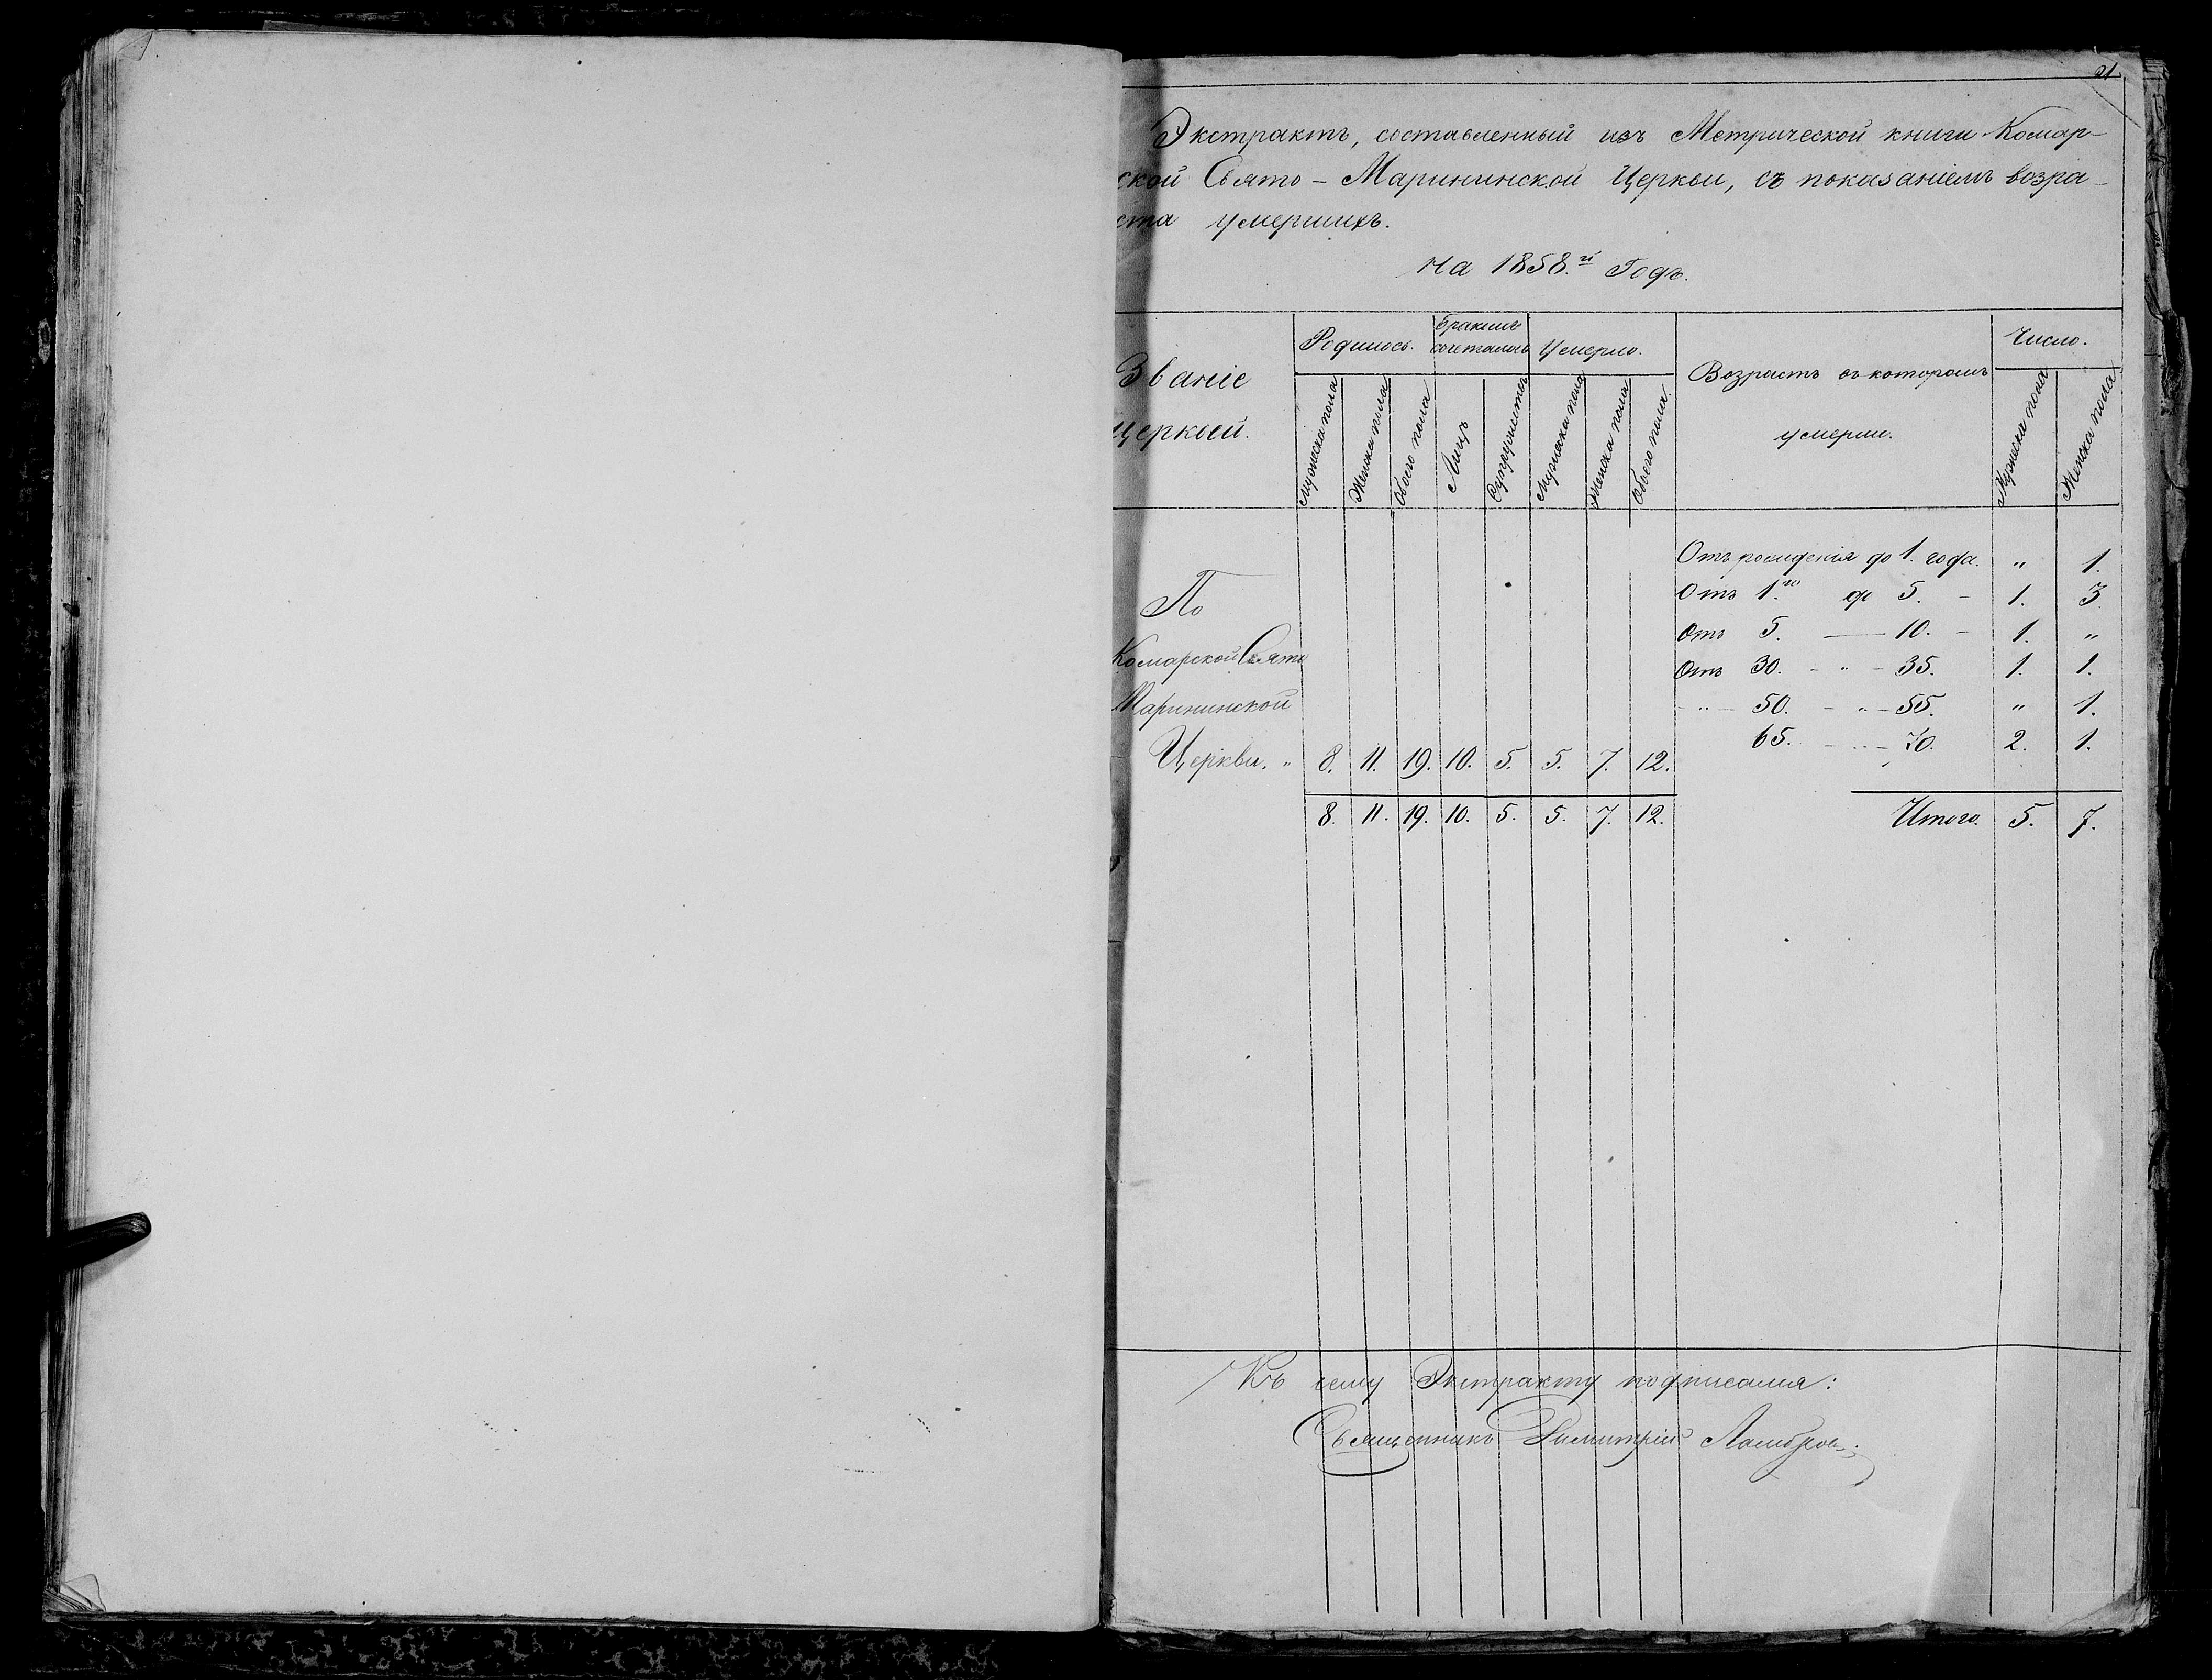 21.
Экстрактъ, составленный изъ Метрической книги Комар-
ской Свято-Марининской Церкви, съ показаніемъ возра-
ста умершихъ.
на 1858.й Годъ.
Званіе
Церквей.
Родилось.
Бракомъ
сочеталось
Умерло.
Возрастъ въ которомъ
умерли.
Число.
Мужеска пола
Женска пола
Обоего пола
Лицъ
Супружествъ
Мужеска пола
Женска пола
Обоего пола.
Мужеска пола
Женска пола.
Отъ рожденія до 1. года. " 1.
Отъ 1.го до 5. - 1. 3.
Отъ 5. — 10. - 1. "
Отъ 30. - " - 35. 1. 1.
- " - 50. - " - 55. " 1.
65. - " - 70. 2. 1.
По
Комарской Свято
Марининской
Церкви. " 8. 11. 19. 10. 5. 5. 7. 12.
8. 11. 19. 10. 5. 5. 7. 12. Итого. 5. 7.
Къ сему Экстракту подписался:
Священникъ Димитрій